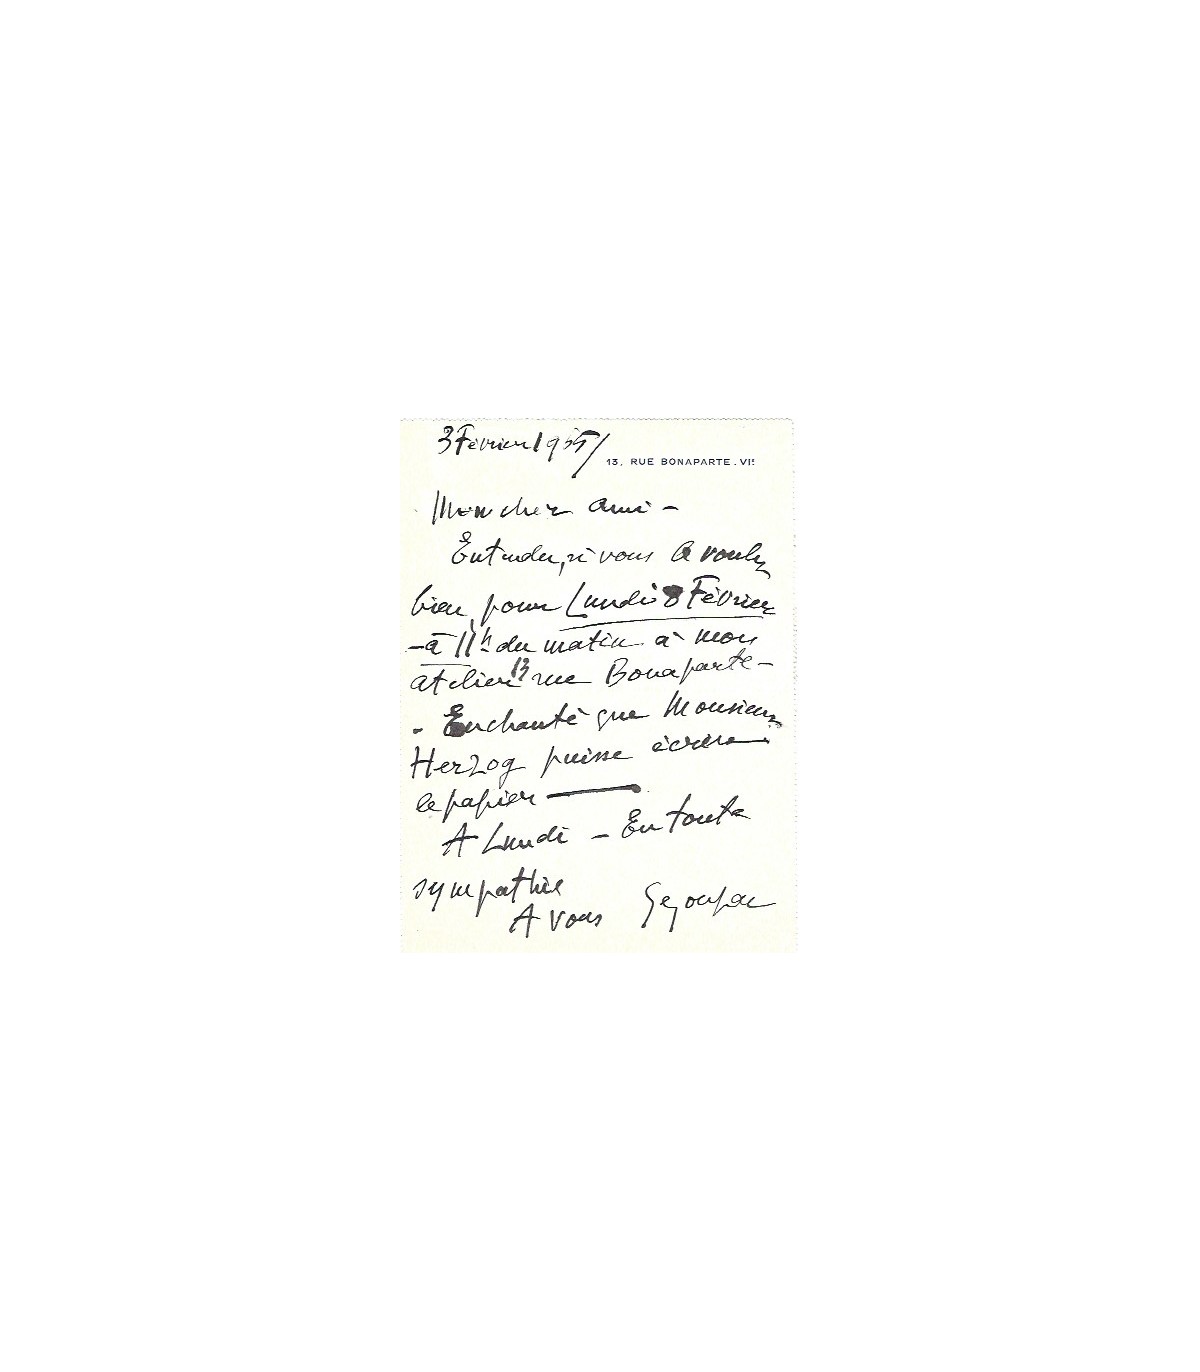 3 Février 195
13, RUE BONAPARTE. VIe
Mon cher ami -
Entendu, si vous le voulez
bien, pour Lundi 8 Février
- à 11h du matin à mon
atelier 13 rue Bonaparte -
- Enchanté que Monsieur
Herzog puisse écrire
le papier
A Lundi - En toute
sympathie
A vous Segonzac